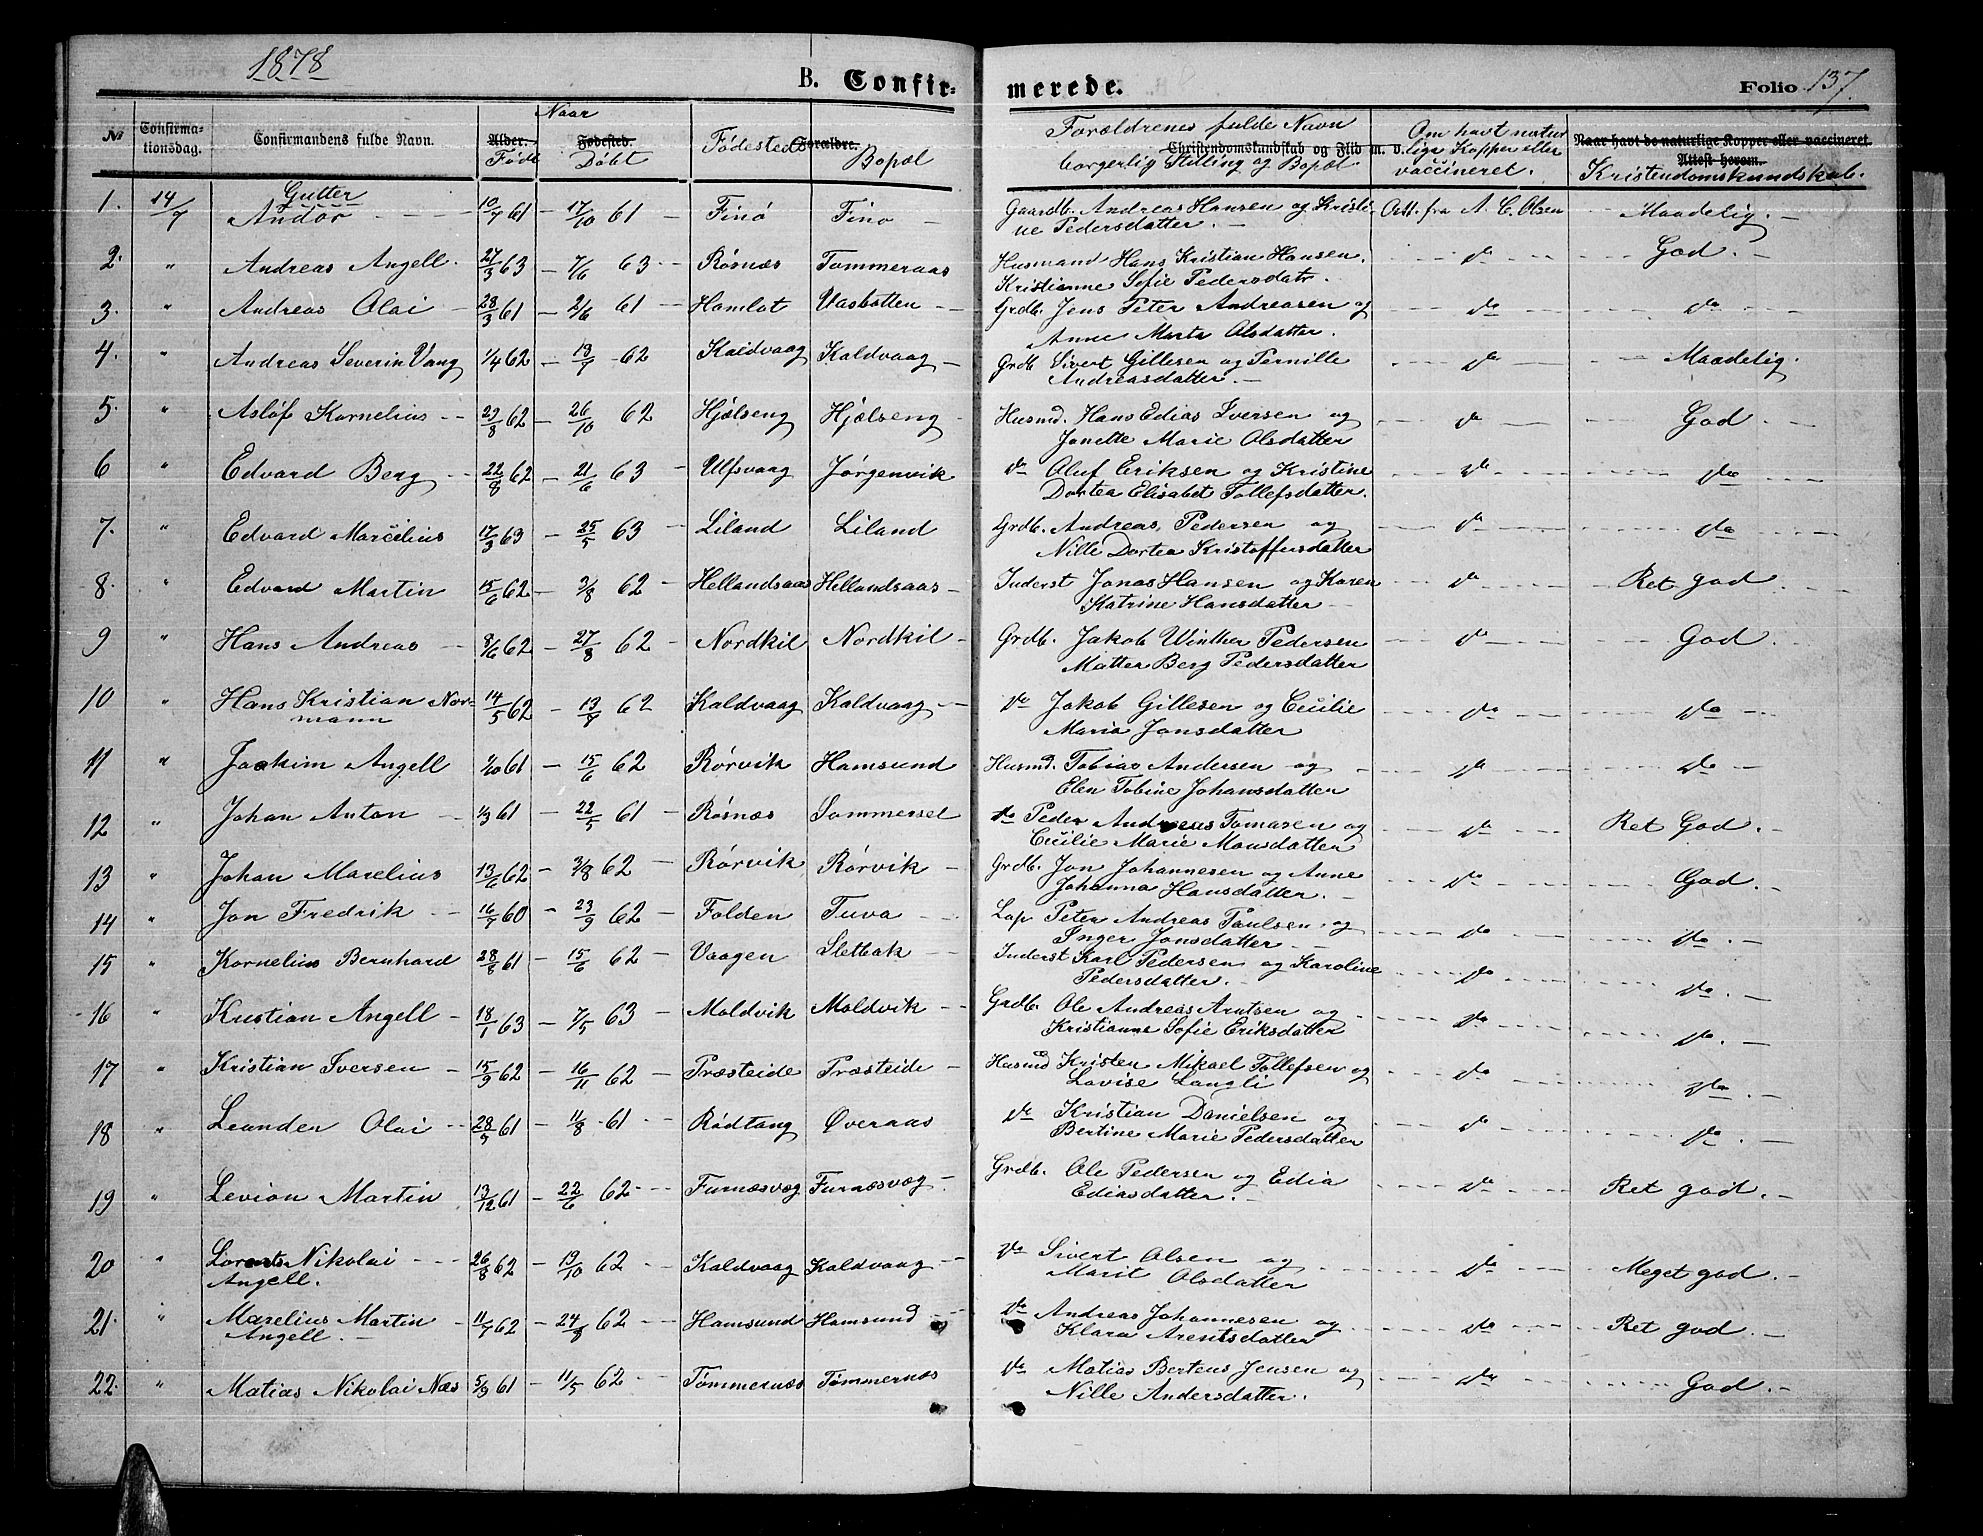 1878
B. Confir-
merede.
Folio 137
No
Confirma-
tionsdag.
Confirmandens fulde Navn.
Naar
Alder.
Født
Fødested.
Døbt
Fødested
Forældre.
Bopæl
Forældrenes fulde Navn
Christendomskundskab og Flid m. v.
borgerlig Stilling og Bopæl.
Om havt natur
lige Kopper eller
vaccineret.
Naar havt de naturlige Kopper eller vaccineret.
Attest herom.
Kristendomskundskab.
Gutter
1. 14/7 Andor 10/7 61 – 17/10 61 Finø Finø Gaardb. Andreas Hansen og Kristi- Att. fra A. C. Olsen Maadelig.
ne Pedersdatter.
2. " Andreas Angell. 27/3 63 – 7/6 63 Røsnæs Tommeraas Husmand Hans Kristian Hansen. do God.
Kristianne Sofie Pedersdatr.
3. " Andreas Olai 28/3 61 – 2/6 61 Hamlot Vasbotten Grdb. Jens Peter Andreasen og do do
Anne Marta Olsdatter.
4. " Andreas Severin Vang 1/4 62 – 13/7 62 Kaldvaag Kaldvaag Grdb Sivert Gillesen og Pernille do Maadelig.
Andreasdatter.
5. " Asløf Kornelius 29/8 62 – 26/10 62 Hjælseng Hjælseng Husmd. Hans Edias Iversen og do God
Janette Marie Olsdatter
6 " Edvard Berg 22/8 62 – 21/6 63 Ulfsvaag Jørgenvik do Oluf Eriksen og Kristine do do
Dortea Elisabet Tollefsdatter.
7. " Edvard Marcelius 17/3 63 – 25/5 63 Liland Liland Grdb. Andreas Pedersen og do do
Nille Dortea Kristoffersdatter
8. " Edvard Martin 15/6 62 – 3/8 62 Hellandsaas Hellandsaas Inderst Jonas Hansen og Karen do Ret god
Katrine Hansdatter
9 " Hans Andreas 8/6 62 – 27/8 62 Nordkil Nordkil Grdb. Jakob Winther Pedersen do God.
Matter Berg Pedersdatter
10 " Hans Kristian Nor- 14/5 62 – 13/7 62 Kaldvaag Kaldvaag do Jakob Gillesen og Cecilie do do
mann Maria Jonsdatter
11 " Joakim Angell 1/10 61 – 15/6 62 Rørvik Hamsund Husmd. Tobias Andersen og do do
Elen Tobine Johansdatter
12 " Johan Anton 1/3 61 – 22/5 61 Røsnæs Sommersel do Peder Andreas Tomasen og do Ret God.
Cecilie Marie Monsdatter
13 " Johan Marelius 13/6 62 – 3/8 62 Rørvik Rørvik Grdb. Jon Johannesen og Anne do God.
Johanna Hansdatter.
14 " Jon Fredrik 16/7 60 – 23/9 62 Folden Tuva Lap Peter Andreas Paulsen og do do
Inger Jonsdatter
15 " Kornelius Bernhard 28/8 61 – 15/6 62 Vaagen Sletbak Inderst Karl Pedersen og Karoline do do
Pedersdatter.
16 " Kristian Angell 18/1 63 – 7/5 63 Moldvik Moldvik Grdb. Ole Andreas Arntsen og do do
Kristianne Sofie Eriksdatter
17 " Kristian Iversen 15/9 62 – 16/11 62 Præsteide Præsteide Husmd Kristen Mikael Tollefsen og do do
Lovise Langli
18 " Leander Olai 28/3 61 – 11/8 61 Rødtang Øveraas do Kristian Danielsen og do do
Bertine Marie Pedersdatter
19 " Levion Martin 13/12 61 – 22/6 62 Furnæsvag Furnæsvag Grdb. Ole Pedersen og Edia do Ret god.
Ediasdatter.
20 " Lorents Nikolai 26/8 62 – 19/10 62 Kaldvaag Kaldvaag do Sivert Olsen og do Meget god.
Angell. Marit Olsdatter
21. " Marelius Martin 11/7 62 – 24/8 62 Hamsund Hamsund do Andreas Johannesen og do Ret god.
Angell. Klara Arentsdatter
22. " Matias Nikolai Næs 5/9 61 – 11/5 62 Tømmernæs Tømmernæs do Matias Bertens Jensen og do God.
Nille Andersdatter.